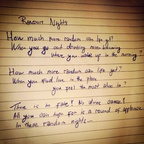 Random Nights
How much more random can life get?
When you go out driving never knowing
where you would end up in the morning
How much more random can life get?
When you find love in the place
you feel the most alone in?
There is no fate! No divine comedy!
All you can hope for is a round of applause
In these random nights...